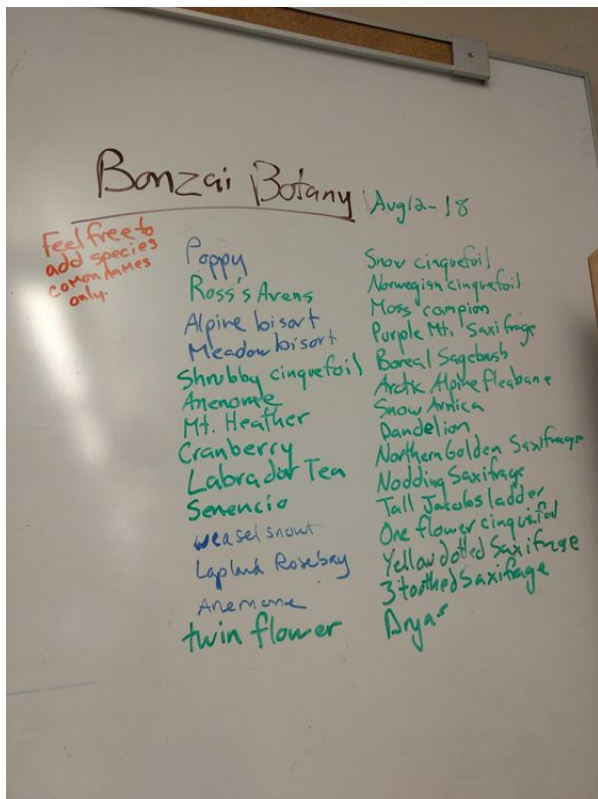 Bonzai Botany
Aug12-18
Feel free to
add species
common names
only.
Poppy
Ross's Avens
Alpine bisort
Meadow bisort
Shrubby cinquefoil
Anenome
Mt. Heather
Cranberry
Labrador Tea
Senencio
weasel snout
Lapland Rosebay
Anemone
twin flower
Snow cinquefoil
Norwegian cinquefoil
Moss campion
Purple Mt. Saxifrage
Boreal Sagebush
Arctic Alpine fleabane
Snow Arnica
Dandelion
Northern Golden Saxifrage
Nodding Saxifrage
Tall Jakobs ladder
One flower cinquifoil
Yellow dotted Saxifrage
3 toothed Saxifrage
Dryas